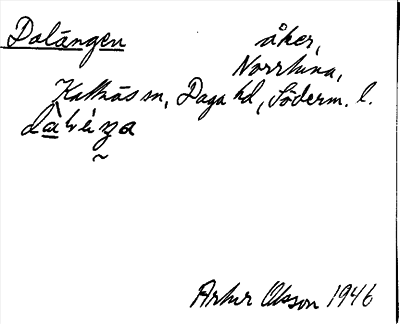 Dalängen åker,
Norrtuna,
Kattnäs sn, Daga hd, Söderm. l.
Artur Olsson 1946